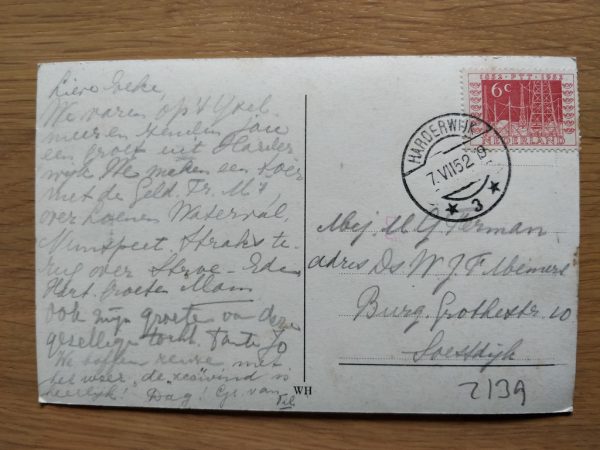 Lieve Eeke,
We varen op 't IJsel
meer en zenden jou
een groet uit Harder
wijk. We maken een toer
met de Geld. Tr. Mij
over Loenen Waterval,
Nunspeet. Straks te-
rug over Stroe - Ede.
Hart. groeten Mam
Ook mijn groeten van deze
gezellige tocht. Tante Jo
We boffen reuze met
het weer, de "zeewind" is
heerlijk! Dag! van
WH
1852 PTT 1952
6c
NEDERLAND
HARDERWIJK
7.VII.52 19
3
Mej. M G Herman
adres Ds W J F Meiners
Burg. Grothestr 10
Soestdijk
2139